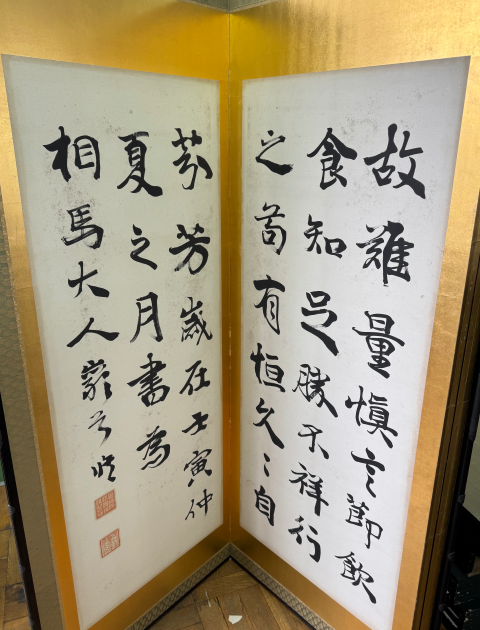 故難量慎言節飲
食知足勝不祥行
之苟有恒久〻自
芬芳歲在壬寅仲
夏之月書為
相馬大人嚴修